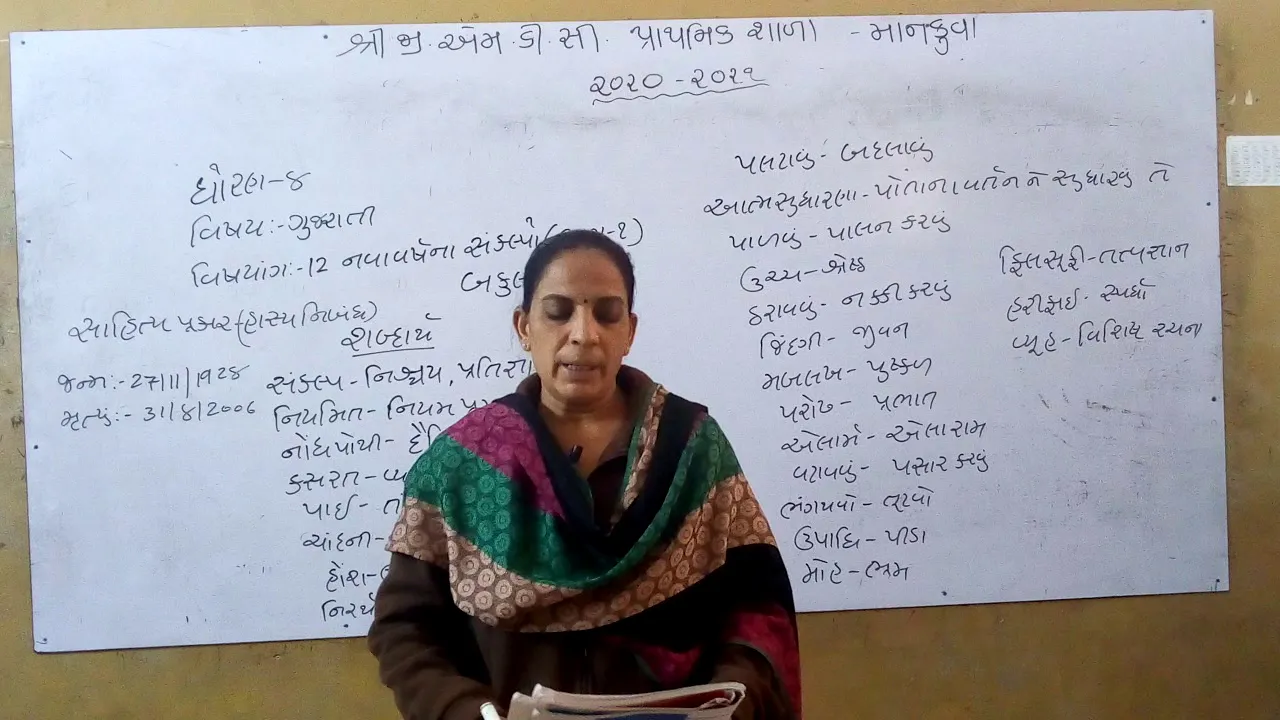 શ્રી જી. એમ. ડી. સી. પ્રાથમિક શાળા - માનકુવા
૨૦૨૦ - ૨૦૨૧
ધોરણ-૪
વિષય:- ગુજરાતી
વિષયાંગ:-12 નવાવર્ષના સંકલ્પો (-૧)
બકુલ
સાહિત્ય પ્રકાર (હાસ્ય નિબંધ)
શબ્દાર્થ
જન્મ:- 27/11/1928
મૃત્યું:- 31/8/2006
સંકલ્પ - નિશ્ચય, પ્રતિજ્ઞા
નિયમિત - નિયમ
નોંધપોથી -
કસરત -
પાઈ -
ચાંદની -
હોંશ -
પલટાવું - બદલાવું
આત્મસુધારણા - પોતાના વર્તન ને સુધારવું તે
પાળવું - પાલન કરવું
ઉચ્ચ - શ્રેષ્ઠ
ઠરાવવું - નક્કી કરવું
જિંદગી - જીવન
મબલખ - પુષ્કળ
પરોઢ - પ્રભાત
એલાર્મ - એલારામ
વટાવવું - પસાર કરવું
ભંગથવો - તૂટવો
ઉપાધિ - પીડા
મોહ - ભ્રમ
ફિલસૂફી - તત્વજ્ઞાન
હરીફાઈ - સ્પર્ધા
વ્યૂહ - વિશિષ્ટ રચના